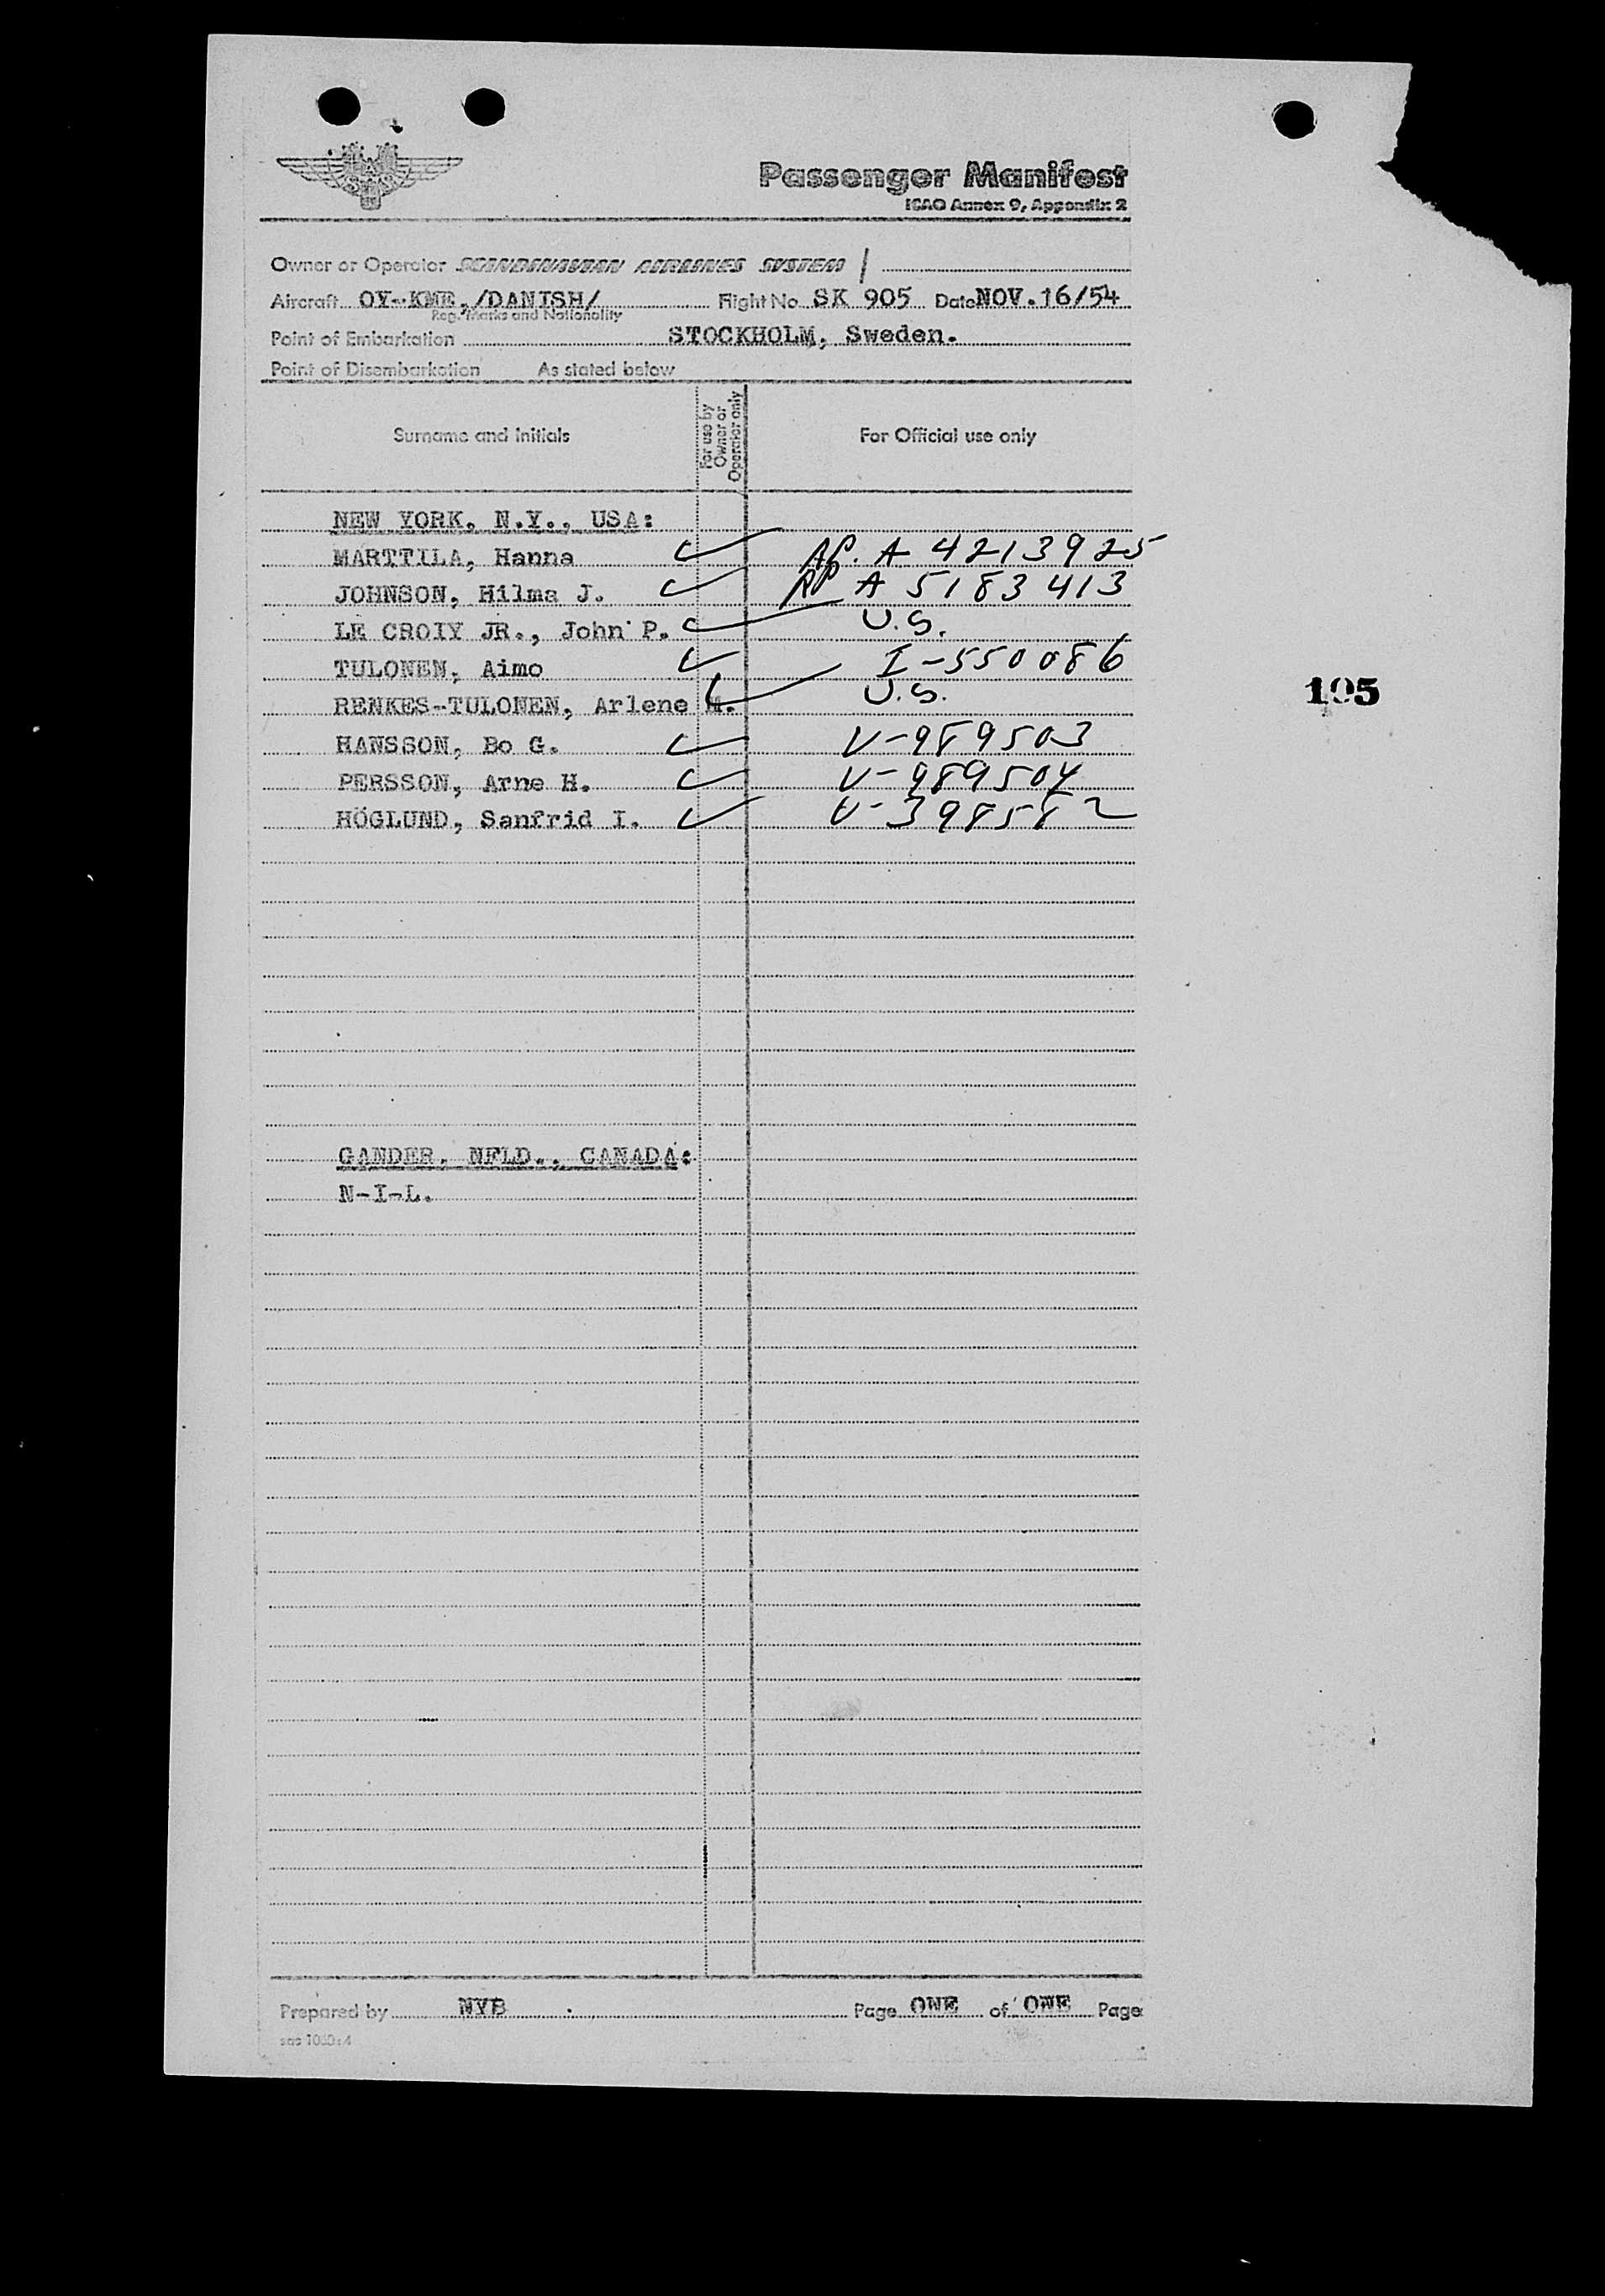 SAS
Passenger Manifest
ICAO Annex 9, Appendix 2
Owner or Operator SCANDINAVIAN AIRLINES SYSTEM
Aircraft OY-KME,/DANISH/ Flight No SK 905 Date NOV.16/54
Reg. Marks and Nationality
Point of Embarkation STOCKHOLM, Sweden.
Point of Disembarkation As stated below
Surname and Initials For use by Owner or Operator only For Official use only
NEW YORK, N.Y., USA:
MARTTILA, Hanna RP. A 4213925
JOHNSON, Hilma J. RP A 5183413
LE CROIY JR., John P. U.S.
TULONEN, Aimo I-550086
RENKES-TULONEN, Arlene M. U.S.
195
HANSSON, Bo G. V-989503
PERSSON, Arne H. V-989504
HÖGLUND, Sanfrid I. V-398582
GANDER, NFLD., CANADA:
N-I-L.
Prepared by NYB Page ONE of ONE Page